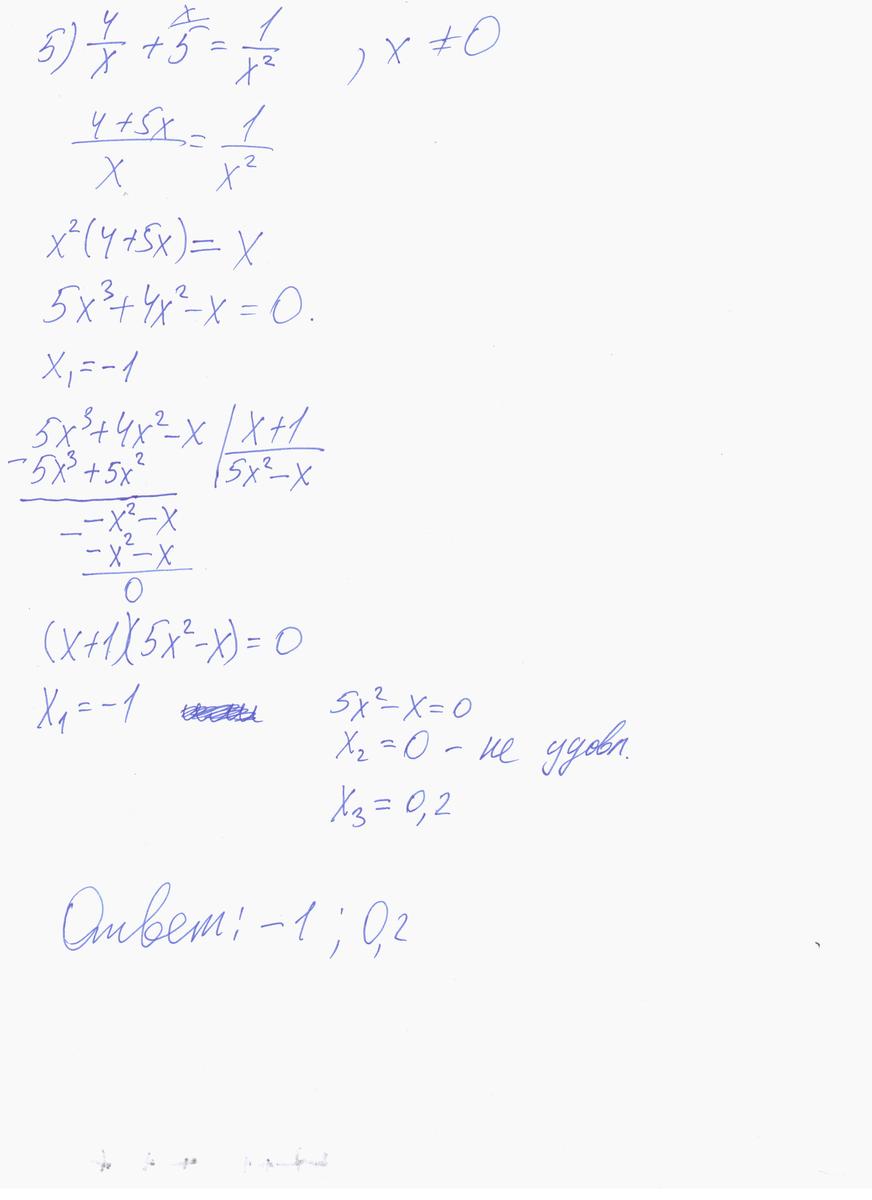 5) 4/x + 5 = 1/x² , x ≠ 0
x
(4+5x)/x = 1/x²
x²(4+5x) = x
5x³+4x²-x = 0.
x₁ = -1
5x³+4x²-x | x+1
-5x³+5x² | 5x²-x
- -x²-x
-x²-x
0
(x+1)(5x²-x) = 0
x₁ = -1 5x²-x = 0
x₂ = 0 - не удовл.
x₃ = 0,2
Ответ: -1 ; 0,2